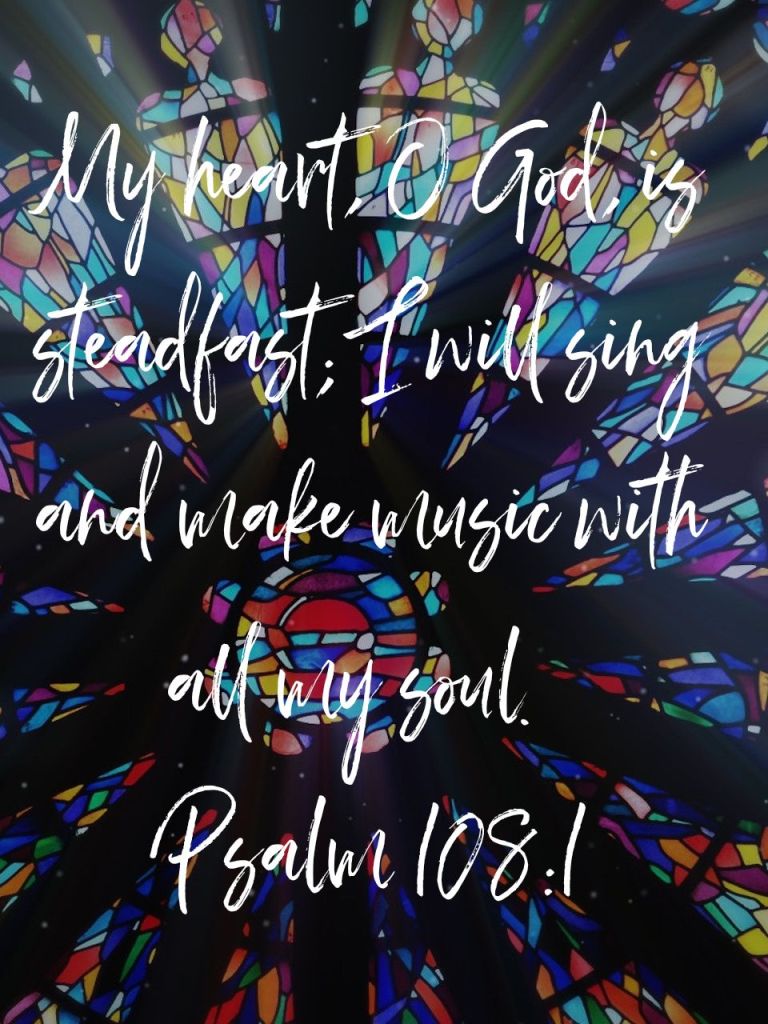 My heart, O God, is
steadfast; I will sing
and make music with
all my soul.
Psalm 108:1